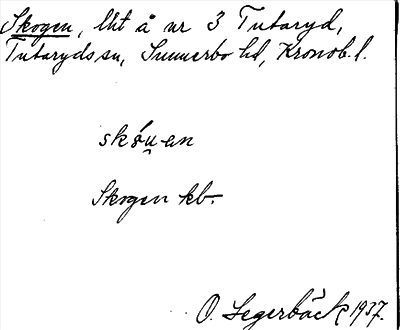 Skogen, lht å nr 3 Tutaryd,
Tutaryds sn, Sunnerbo hd, Kronob. l.
skóu̯-en
Skogen kb.
O. Segerbäck 1937.